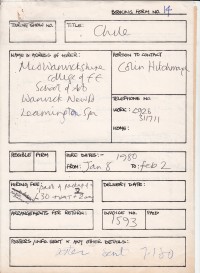 BOOKING FORM NO. 14
TITLE:
Chile
NAME & ADDRESS OF HIRER:
PERSON TO CONTACT
Mid Warwickshire
College of FE
School of Art
Warwick New Rd
Leamington Spa
Colin Hitchman
TELEPHONE NO:
WORK:
311711
HOME:
POSSIBLE FIRM
HIRE DATES:- 1980
FROM: Jan 8 TO: Feb 2
HIRING FEE:
DELIVERY DATE:
£30
ARRANGEMENTS FOR RETURN:
INVOICE NO. PAID
1593
POSTERS/INFO SENT & ANY OTHER DETAILS:
sent 7.1.80